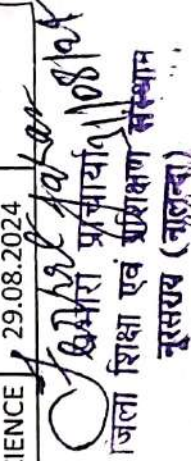 IENCE 29.08.2024
21/08/24
प्रभारी प्राचार्या
जिला शिक्षा एवं प्रशिक्षण संस्थान
नूरसराय (नालन्दा)